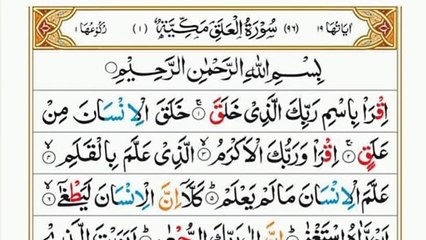 اٰيَاتُهَا ١٩ (٩٦) سُوْرَةُ الْعَلَقِ مَكِّيَّةٌ (١) رُكُوْعُهَا ١
بِسْمِ اللّٰهِ الرَّحْمٰنِ الرَّحِيْمِ
اِقْرَاْ بِاسْمِ رَبِّكَ الَّذِىْ خَلَقَ ۚ‏ ١ خَلَقَ الْاِنْسَانَ مِنْ
عَلَقٍ ۚ‏ ٢ اِقْرَاْ وَرَبُّكَ الْاَكْرَمُ ۙ‏ ٣ الَّذِىْ عَلَّمَ بِالْقَلَمِ ۙ‏ ٤
عَلَّمَ الْاِنْسَانَ مَالَمْ يَعْلَمْ ؕ‏ ٥ كَلَّاۤ اِنَّ الْاِنْسَانَ لَيَطْغٰٓى ۙ‏ ٦